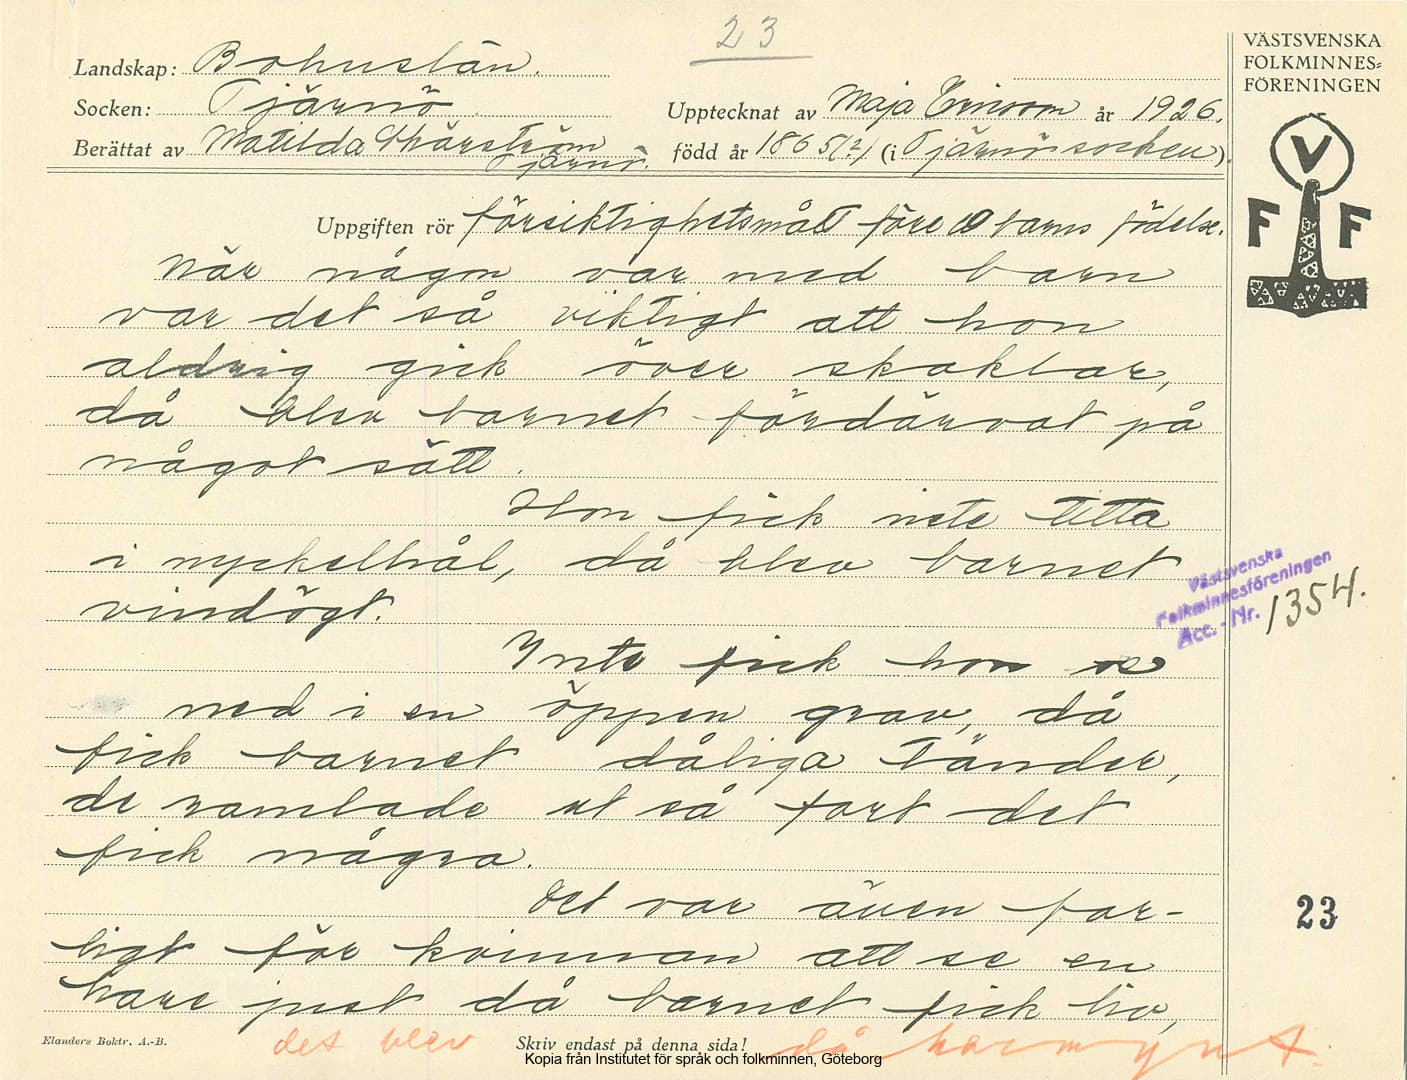 23
VÄSTSVENSKA
FOLKMINNES=
FÖRENINGEN
Landskap: Bohuslän.
Socken: Tjärnö
Upptecknat av Maja Ericson år 1926.
Berättat av Matilda Skärström
Tjärnö.
född år 1865(?) (i Tjärnö socken).
V
F F
Uppgiften rör försiktighetsmått före barns födelse.
När någon var med barn
var det så viktigt att hon
aldrig gick över skaklar,
då blev barnet fördärvat på
något sätt.
Hon fick inte titta
i nyckelhål, då blev barnet
vindögt.
Västsvenska
Folkminnesföreningen
Acc. - Nr. 1354.
Inte fick hon se
ned i en öppen grav, då
fick barnet dåliga tänder,
de ramlade ut så fort det
fick några.
Det var även far-
ligt för kvinnan att se en
hare just då barnet fick liv,
23
Elanders Boktr. A.-B.
Skriv endast på denna sida!
det blev då harmynt.
Kopia från Institutet för språk och folkminnen, Göteborg